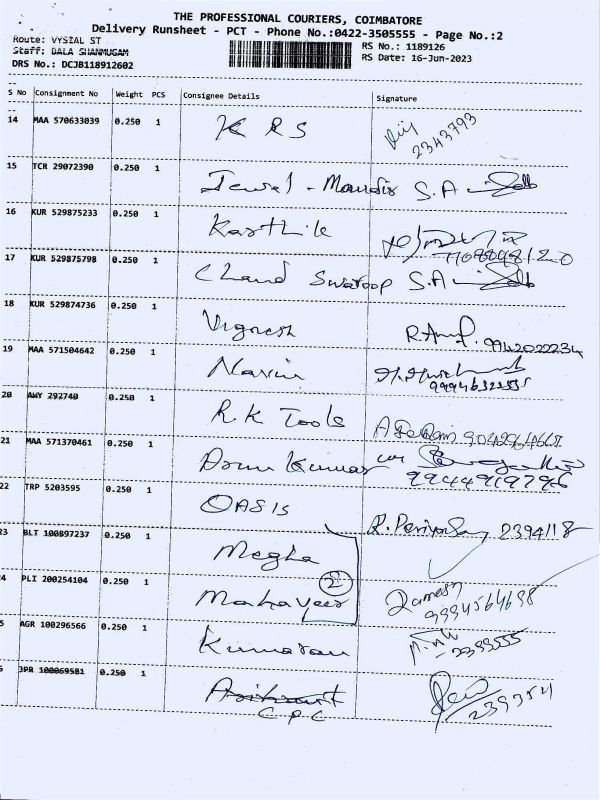 THE PROFESSIONAL COURIERS, COIMBATORE
Delivery Runsheet - PCT - Phone No.:0422-3505555 - Page No.:2
Route: VYSIAL ST
RS No.: 1189126
Staff: BALA SHANMUGAM
RS Date: 16-Jun-2023
DRS No.: DCJB118912602
S No Consignment No Weight PCS Consignee Details Signature
14 MAA 570633039 0.250 1 K R S
2343793
15 TCR 29072390 0.250 1 Jewel - Mandir S.A
16 KUR 529875233 0.250 1 Karthik
17 KUR 529875798 0.250 1 Chand Swaroop S.A
18 KUR 529874736 0.250 1 Vignesh
19 MAA 571504642 0.250 1 Navin
20 AWY 292740 0.250 1 R.K Tools
21 MAA 571370461 0.250 1 Kumar
9944919796
22 TRP 5203595 0.250 1 OASIS 2394118
23 BLT 100897237 0.250 1 Megha
2
24 PLI 200254104 0.250 1 Mahaveer Ramesh
9994564698
5 AGR 100296566 0.250 1 Kumaran
6 JPR 100069581 0.250 1
C P C